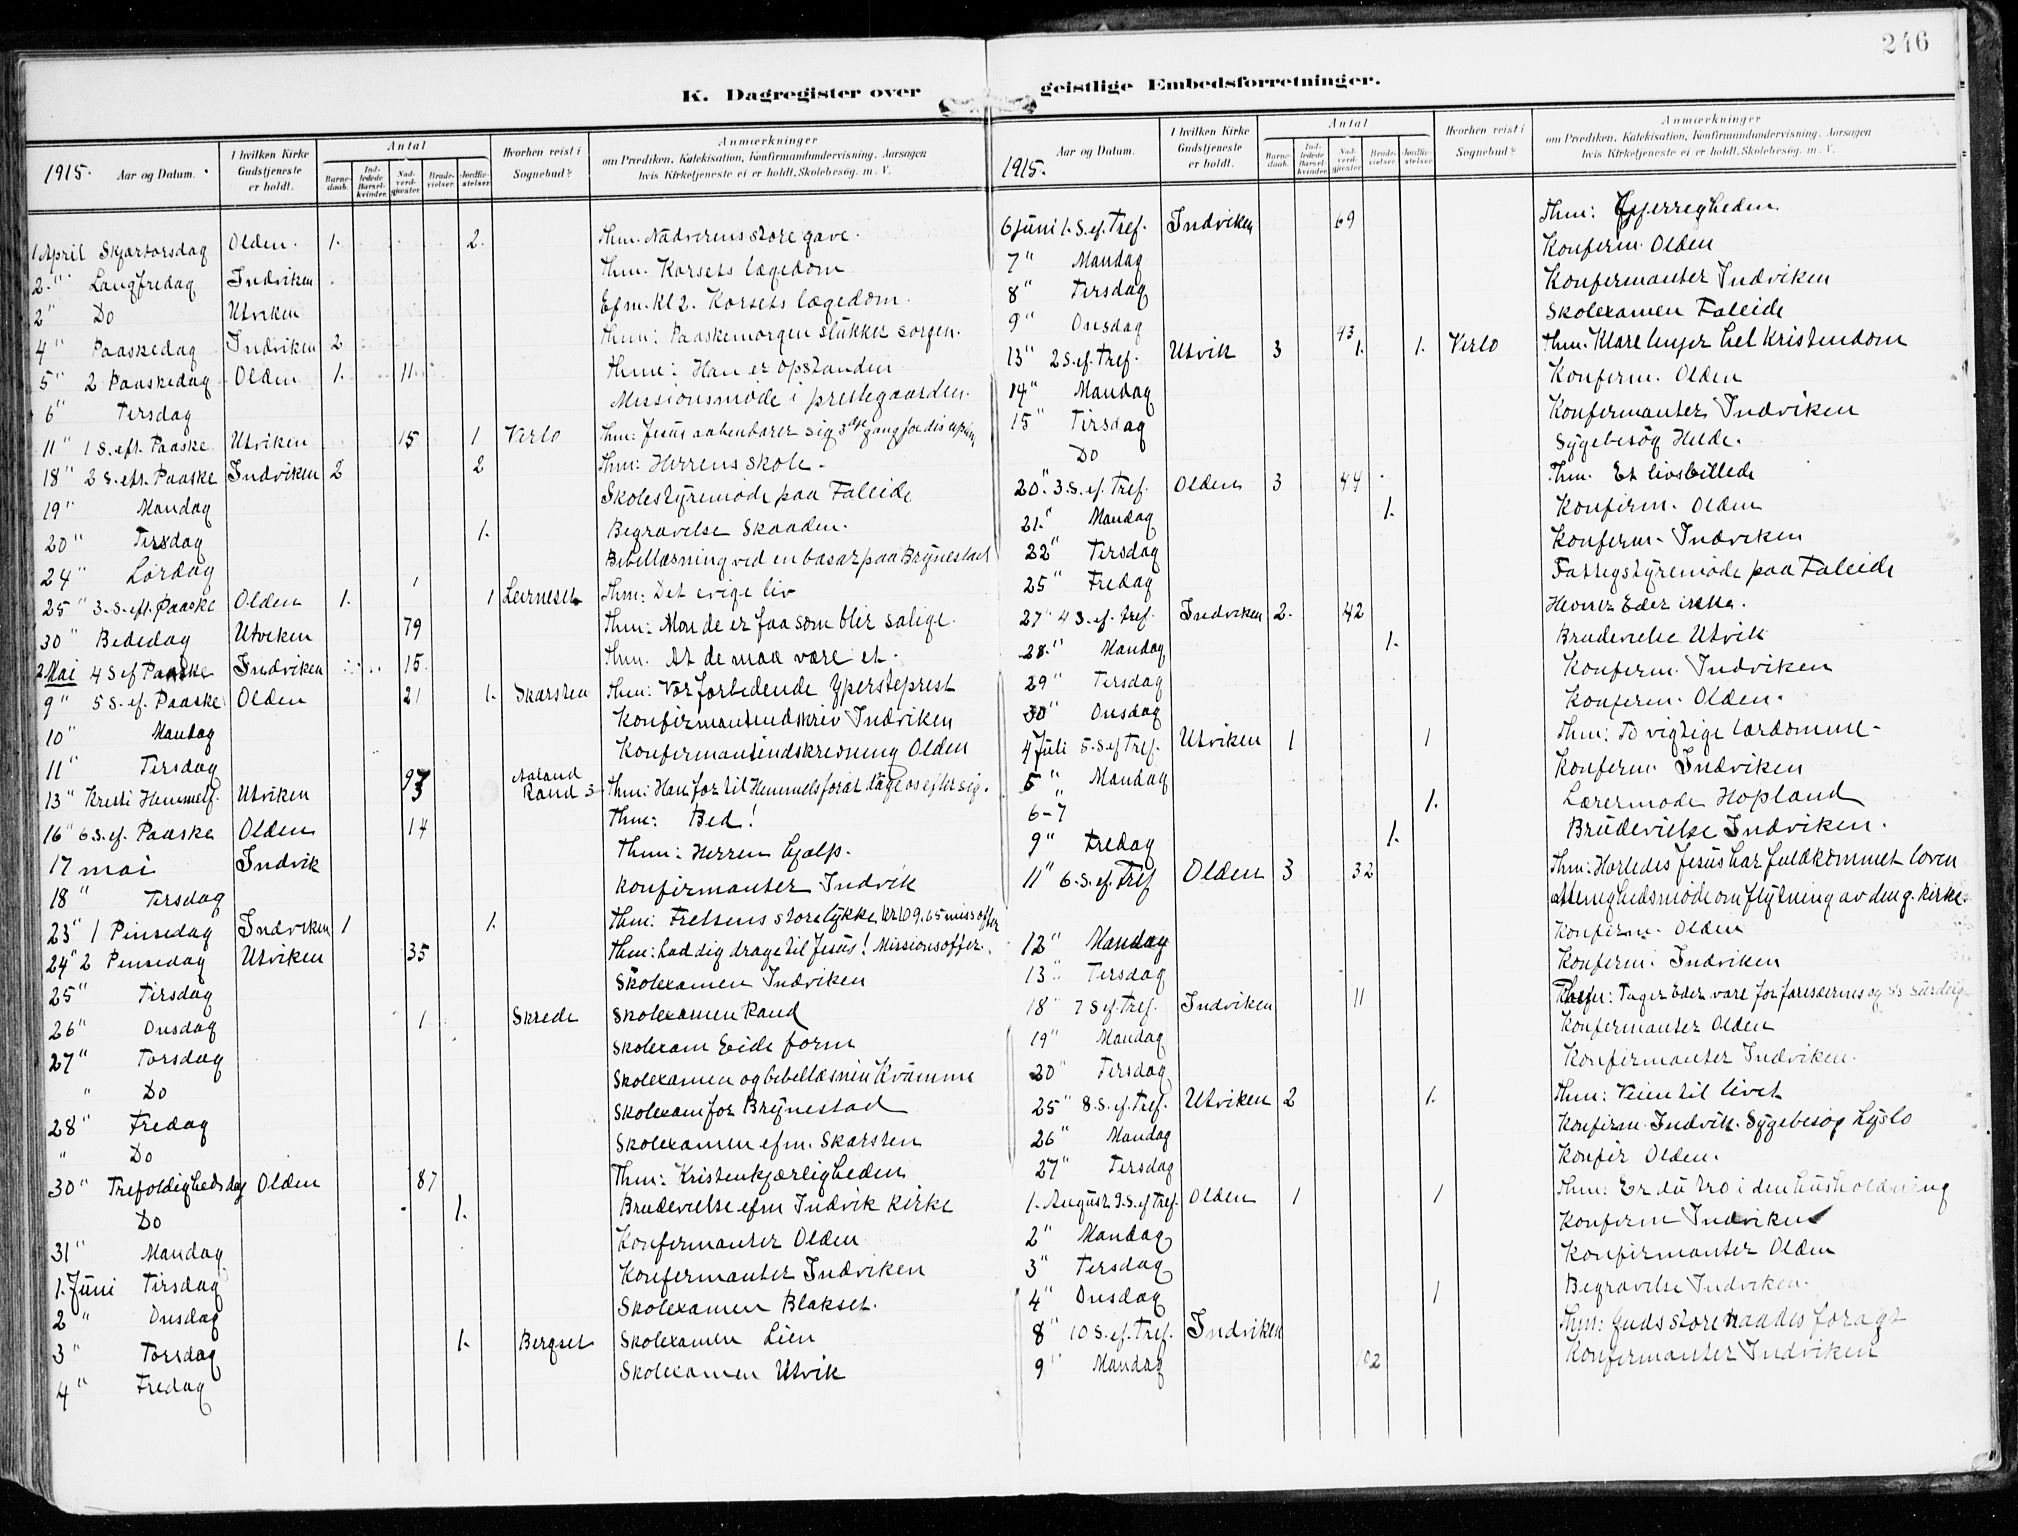 246
K. Dagregister over geistlige Embedsforretninger.
1915. Aar og Datum. I hvilken Kirke Gudstjeneste er holdt. Antal Barnedaab. Indledede Barselkvinder. Nadverdgjester. Brudevielser. Jordfæstelser. Hvorhen reist i Sognebud? Anmærkninger om Prædiken, Katekisation, Konfirmandundervisning, Aarsagen hvis Kirketjeneste ei er holdt, Skolebesøg, m. V.
1 April Skjærtorsdag Olden. 1. 2. Thm. Nadverens store gave.
2. " Langfredag Indviken Thm. Korsets lægedom
2 " Do Utviken Efm. Kl 2. Korsets lægedom.
4 " Paaskedag Indviken 2 Thm: Paaskemorgen slukker sorgen.
5 " 2 Paaskedag Olden 1. 11. Thm: Han er opstanden
6 " Tirsdag Missionsmøde i prestegaarden.
11 " 1 S. eft. Paaske Utviken 15 1 Verlo Thm: Jesus aabenbarer sig 3die gang for
18 " 2 S. eft. Paaske Indviken 2 2 Thm: Herrens skole.
19 " Mandag Skolestyremøde paa Faleide
20 " Tirsdag 1. Begravelse Skaaden.
24 " Lørdag Bibellæsning ved en basar paa Brynestad
25 " 3. S. eft. Paaske Olden 1. 1 1 Leirneset Thm: Det evige liv
30 " Bededag Utviken 79 Thm: Mon de er faa som blir salige.
2 Mai 4 S ef Paaske Indviken 15. Thm. At de maa være et.
9 " 5 S. ef. Paaske Olden 21 1. Skarsten Thm: Vor forbedende Ypersteprest
10 " Mandag Konfirmantindskriv Indviken
11 " Tirsdag Konfirmantindskrivning Olden
13 " Kristi Himmelf. Utviken 93 Aaland Rand 3 Thm: Han for til Himmels for at tage os efter sig.
16 " 6 S. ef. Paaske Olden 14 Thm: Bed!
17 mai Indvik Thm: Herren hjalp.
18 " Tirsdag Konfirmanter Indvik
23 " 1 Pinsedag Indviken 1 1. Thm: Frelsens store lykke kr 109.65 missoffer
24 " 2 Pinsedag Utviken 35 Thm: Lad dig drage til Jesus! Missionsoffer.
25 " Tirsdag Skolexamen Indviken
26 " Onsdag 1 Skrede Skolexamen Rand
27 " Torsdag Skolexam Eide form
" Do Skolexamen og bibellæsnin Kvamme
28 " Fredag Skolexam for Brynestad
" Do Skolexamen efm. Skarsten
30 " Trefoldighedsdag Olden 87 Thm: Kristenkjærligheden
Do 1. Brudevielse efm Indvik Kirke
31 " Mandag Konfirmanter Olden
1. Juni Tirsdag Konfirmanter Indviken
2 " Onsdag Skolexamen Blakset.
3 " Torsdag 1. Bergset Skolexamen Lien
4 " Fredag Skolexamen Utvik
1915. Aar og Datum. I hvilken Kirke Gudstjeneste er holdt. Antal Barnedaab. Indledede Barselkvinder. Nadverdgjester. Brudevielser. Jordfæstelser. Hvorhen reist i Sognebud? Anmærkninger om Prædiken, Katekisation, Konfirmandundervisning, Aarsagen hvis Kirketjeneste ei er holdt, Skolebesøg, m. V.
6 Juni 1. S. ef. Tref. Indviken 69 Thm: Gjerrigheden.
7 " Mandag Konfirm. Olden
8 " Tirsdag Konfirmanter Indviken
9 " Onsdag Skolexamen Faleide
13 " 2 S. ef. Tref. Utvik 3 43 1. 1. Verlo Thm. Klare linjer hel Kristendom
14 " Mandag Konfirm. Olden
15 " Tirsdag Konfirmanter Indviken
Do Sygebesøg Helde.
20 " 3. S. ef. Tref. Olden 3 44 Thm. Et livsbillede
21. " Mandag 1. Konfirm. Olden
22 " Tirsdag Konfirm. Indviken
25 " Fredag Fattigstyremøde paa Faleide
27 " 4 S. ef. Tref. Indviken 2. 42 Hevner Eder ikke.
28. " Mandag 1. Brudevielse Utvik
29 " Tirsdag Konfirm. Indviken
30 " Onsdag Konfirm. Olden.
4 Juli 5. S ef Tref. Utviken 1 1 Thm: To vigtige lærdomme
5 " Mandag Konfirm. Indviken
6-7 " 1. Lærermøde Hopland
9 " Fredag 1. Brudevielse Indviken.
11 " 6. S. ef. Tref Olden 3 32 Thm: Horledes Jesus har fuldkommet loven
Menighedsmøde om flytning av den g. kirke.
12 " Mandag Konfirm. Olden
13 " Tirsdag Konfirm. Indviken
18 " 7 S ef. Tref. Indviken 11 Tager Eder vare for farisæernes og surdeig
19 " Mandag Konfirmanter Olden
20 " Tirsdag Konfirmanter Indviken.
25 " 8. S. ef. Tref. Utviken 2 1. Thm: Veien til livet
26 " Mandag Konfirm. Indvik. Sygebesøg Lyslo
27 " Tirsdag Konfir Olden.
1. August 9. S. ef Tref. Olden 1 1 Thm: Er du tro i den husholdning
2 " Mandag Konfirm Indviken
3 " Tirsdag Konfirmanter Olden
4 " Onsdag 1 Begravelse Indviken.
8 " 10 S. ef. Tref. Indviken Thm: Guds store naades foragt
9 " Mandag 102 Konfirmanter Indviken